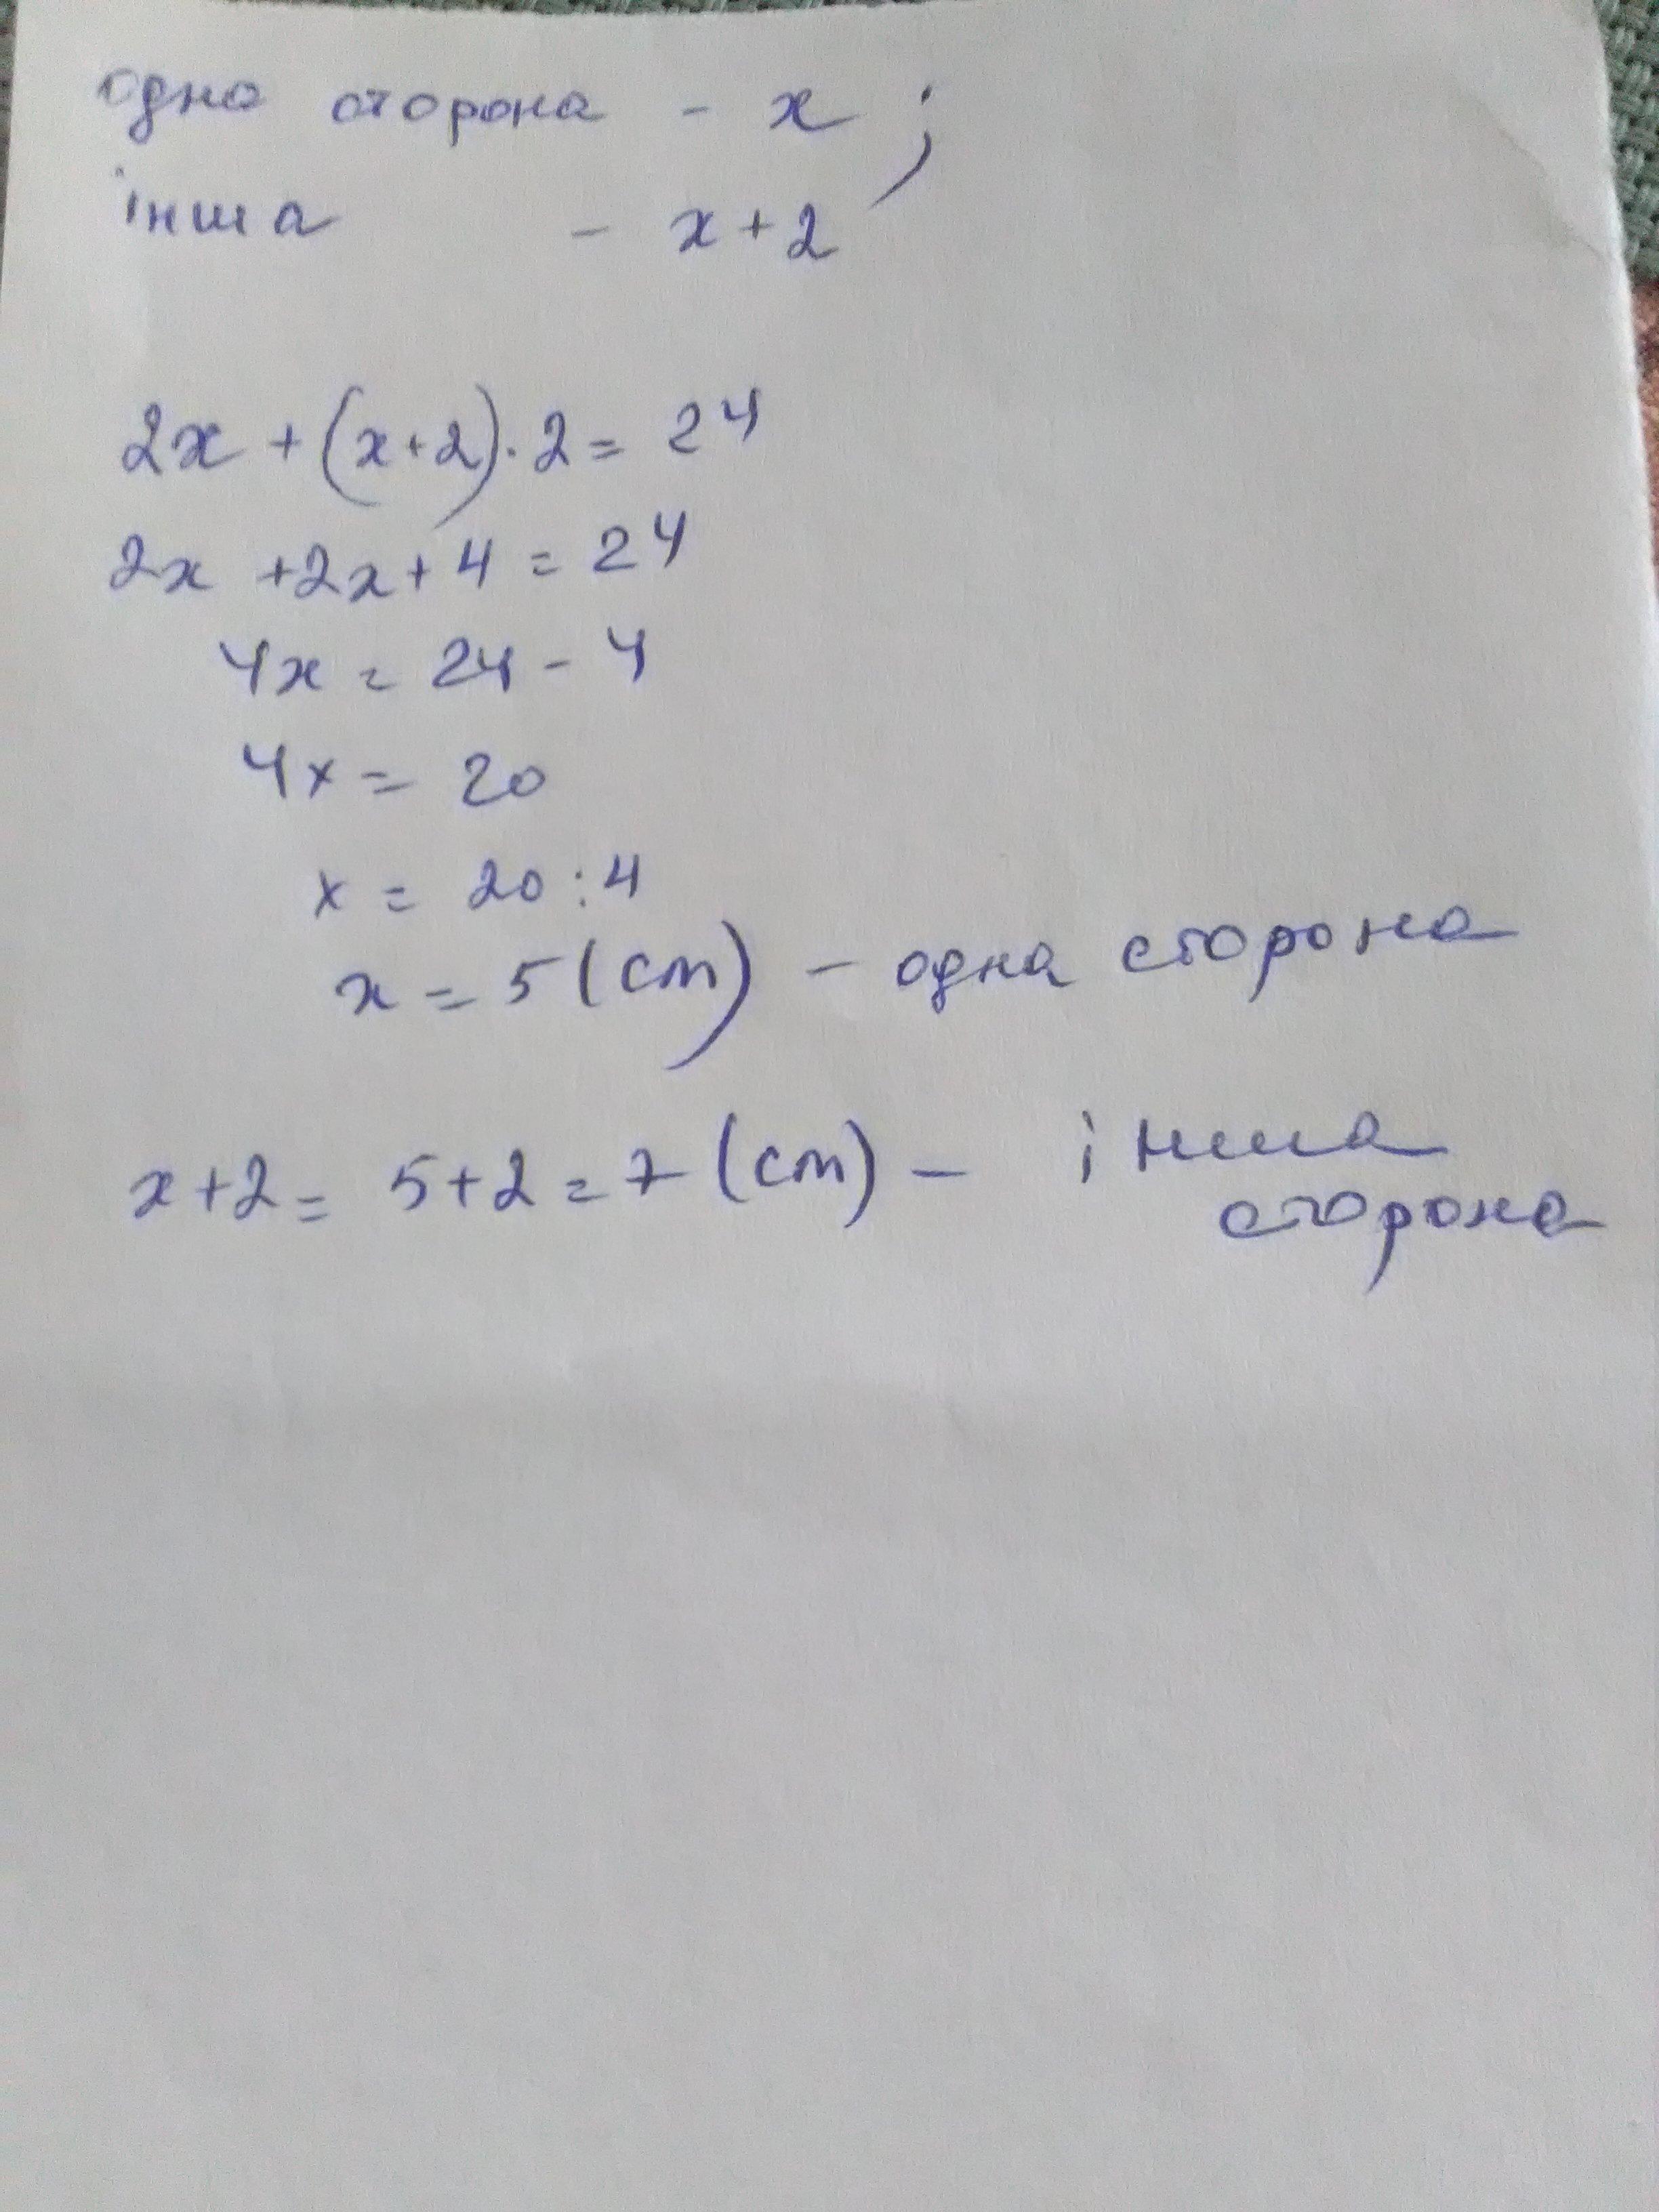 одна сторона - x ;
інша - x + 2
2x + (x+2) · 2 = 24
2x + 2x + 4 = 24
4x = 24 - 4
4x = 20
x = 20 : 4
x = 5 (cm) - одна сторона
x + 2 = 5 + 2 = 7 (cm) - інша
сторона